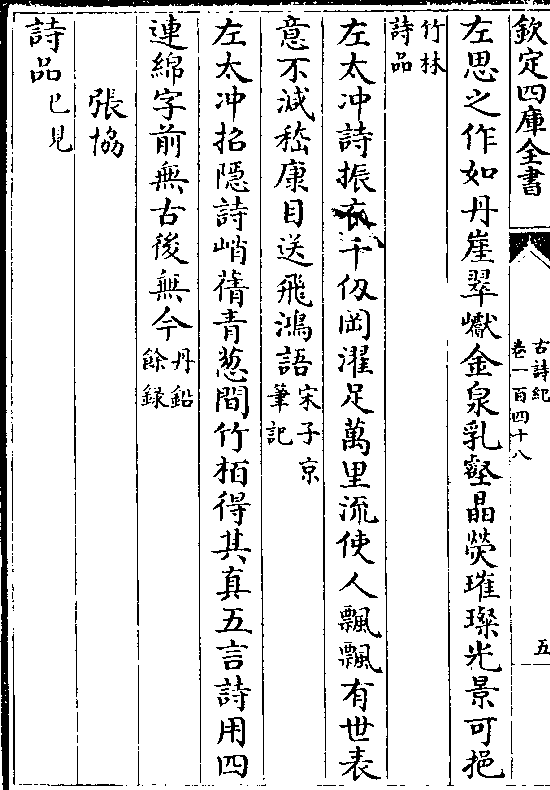 欽定四庫全書
古詩紀
卷一百四十八
五
左思之作如丹崖翠巘金泉乳壑晶熒璀璨光景可挹
竹林
詩品
左太冲詩振衣千仭岡濯足萬里流使人飄飄有世表
意不減嵇康目送飛鴻語宋子京
筆記
左太冲招隱詩峭蒨青葱間竹栢得其真五言詩用四
連綿字前無古後無今丹鉛
餘録
張協
詩品已見